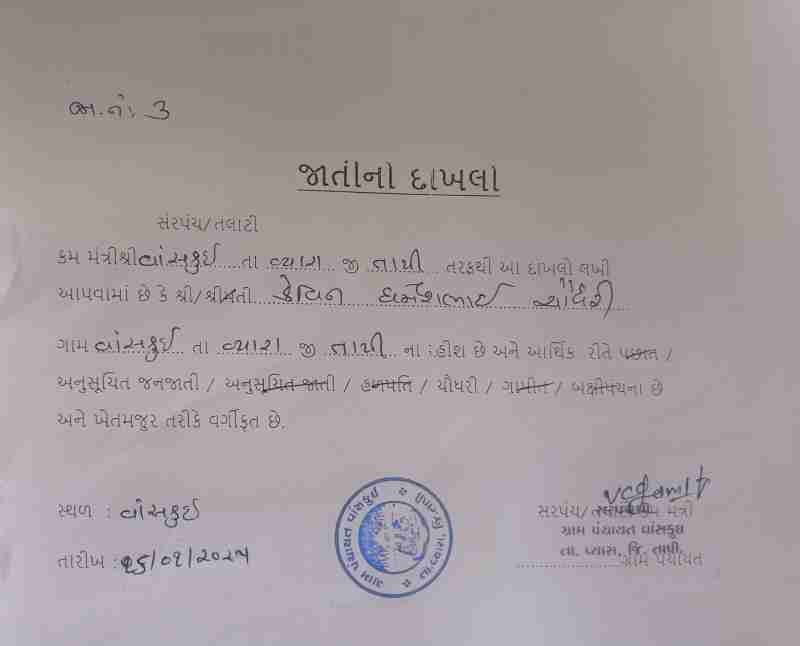 જા.નં. 3
જાતીનો દાખલો
સંરપંચ/તલાટી
કમ મંત્રીશ્રી વાંસકુઈ તા વ્યારા જી તાપી તરફથી આ દાખલો લખી
આપવામાં છે કે શ્રી/શ્રીમતી કેવિન ધર્મેશભાઈ ચૌધરી
ગામ વાંસકુઈ તા વ્યારા જી તાપી ના :હીશ છે અને આર્થિક રીતે પછાત /
અનુસૂચિત જનજાતી / અનુસૂચિત જાતી / હળપતિ / ચૌધરી / ગામીત / બક્ષીપંચના છે
અને ખેતમજુર તરીકે વર્ગીકૃત છે.
સ્થળ : વાંસકુઈ
તારીખ : 25/01/2024
ગ્રામ પંચાયત વાંસકુઇ
તા.વ્યારા,
સરપંચ/ મંત્રી
ગ્રામ પંચાયત વાંસકુઇ
તા. વ્યારા, જિ. તાપી.
ગ્રામ પંચાયત